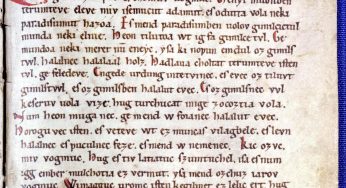 terumteve eleve miv isemucut adamut. es odutta vola neki
paradisumut hazoa. Es mend paradisumben uolov gimilcictul
munda neki elnie. Heon tilutoa wt ig fa gimilce tvl. Ge
mundoa neki meret nu eneyc. ysa ki nopun emdul oz gimils
twl. halalnec halalaal holz. Hadlaua choltat terumteve isten
tvl. ge feledeve. Engede urdung intetvinec. es evec oz tiluvt
gimilstwl. es oz gimilsben halalut evec. Es oz gimilsnec vvl
keseruv uola vize. hug turchucat mige zocoztia vola.
Num heon muga nec. ge mend w foianec halalut evec.
Horogu vec isten. es veteve wt ez muncas vilagbele. es levn
halalnec es puculnec feze. es mend w nemenec. Kic ozvc.
miv vogmuc. Hug es tiv latiatuv szumtuchel. isa es num
igg ember mulchotia ez vermut. ysa mend ozchuz iarov
vogmuc. Wimagguc uromv isten kegilmet ez lelic ert. hug